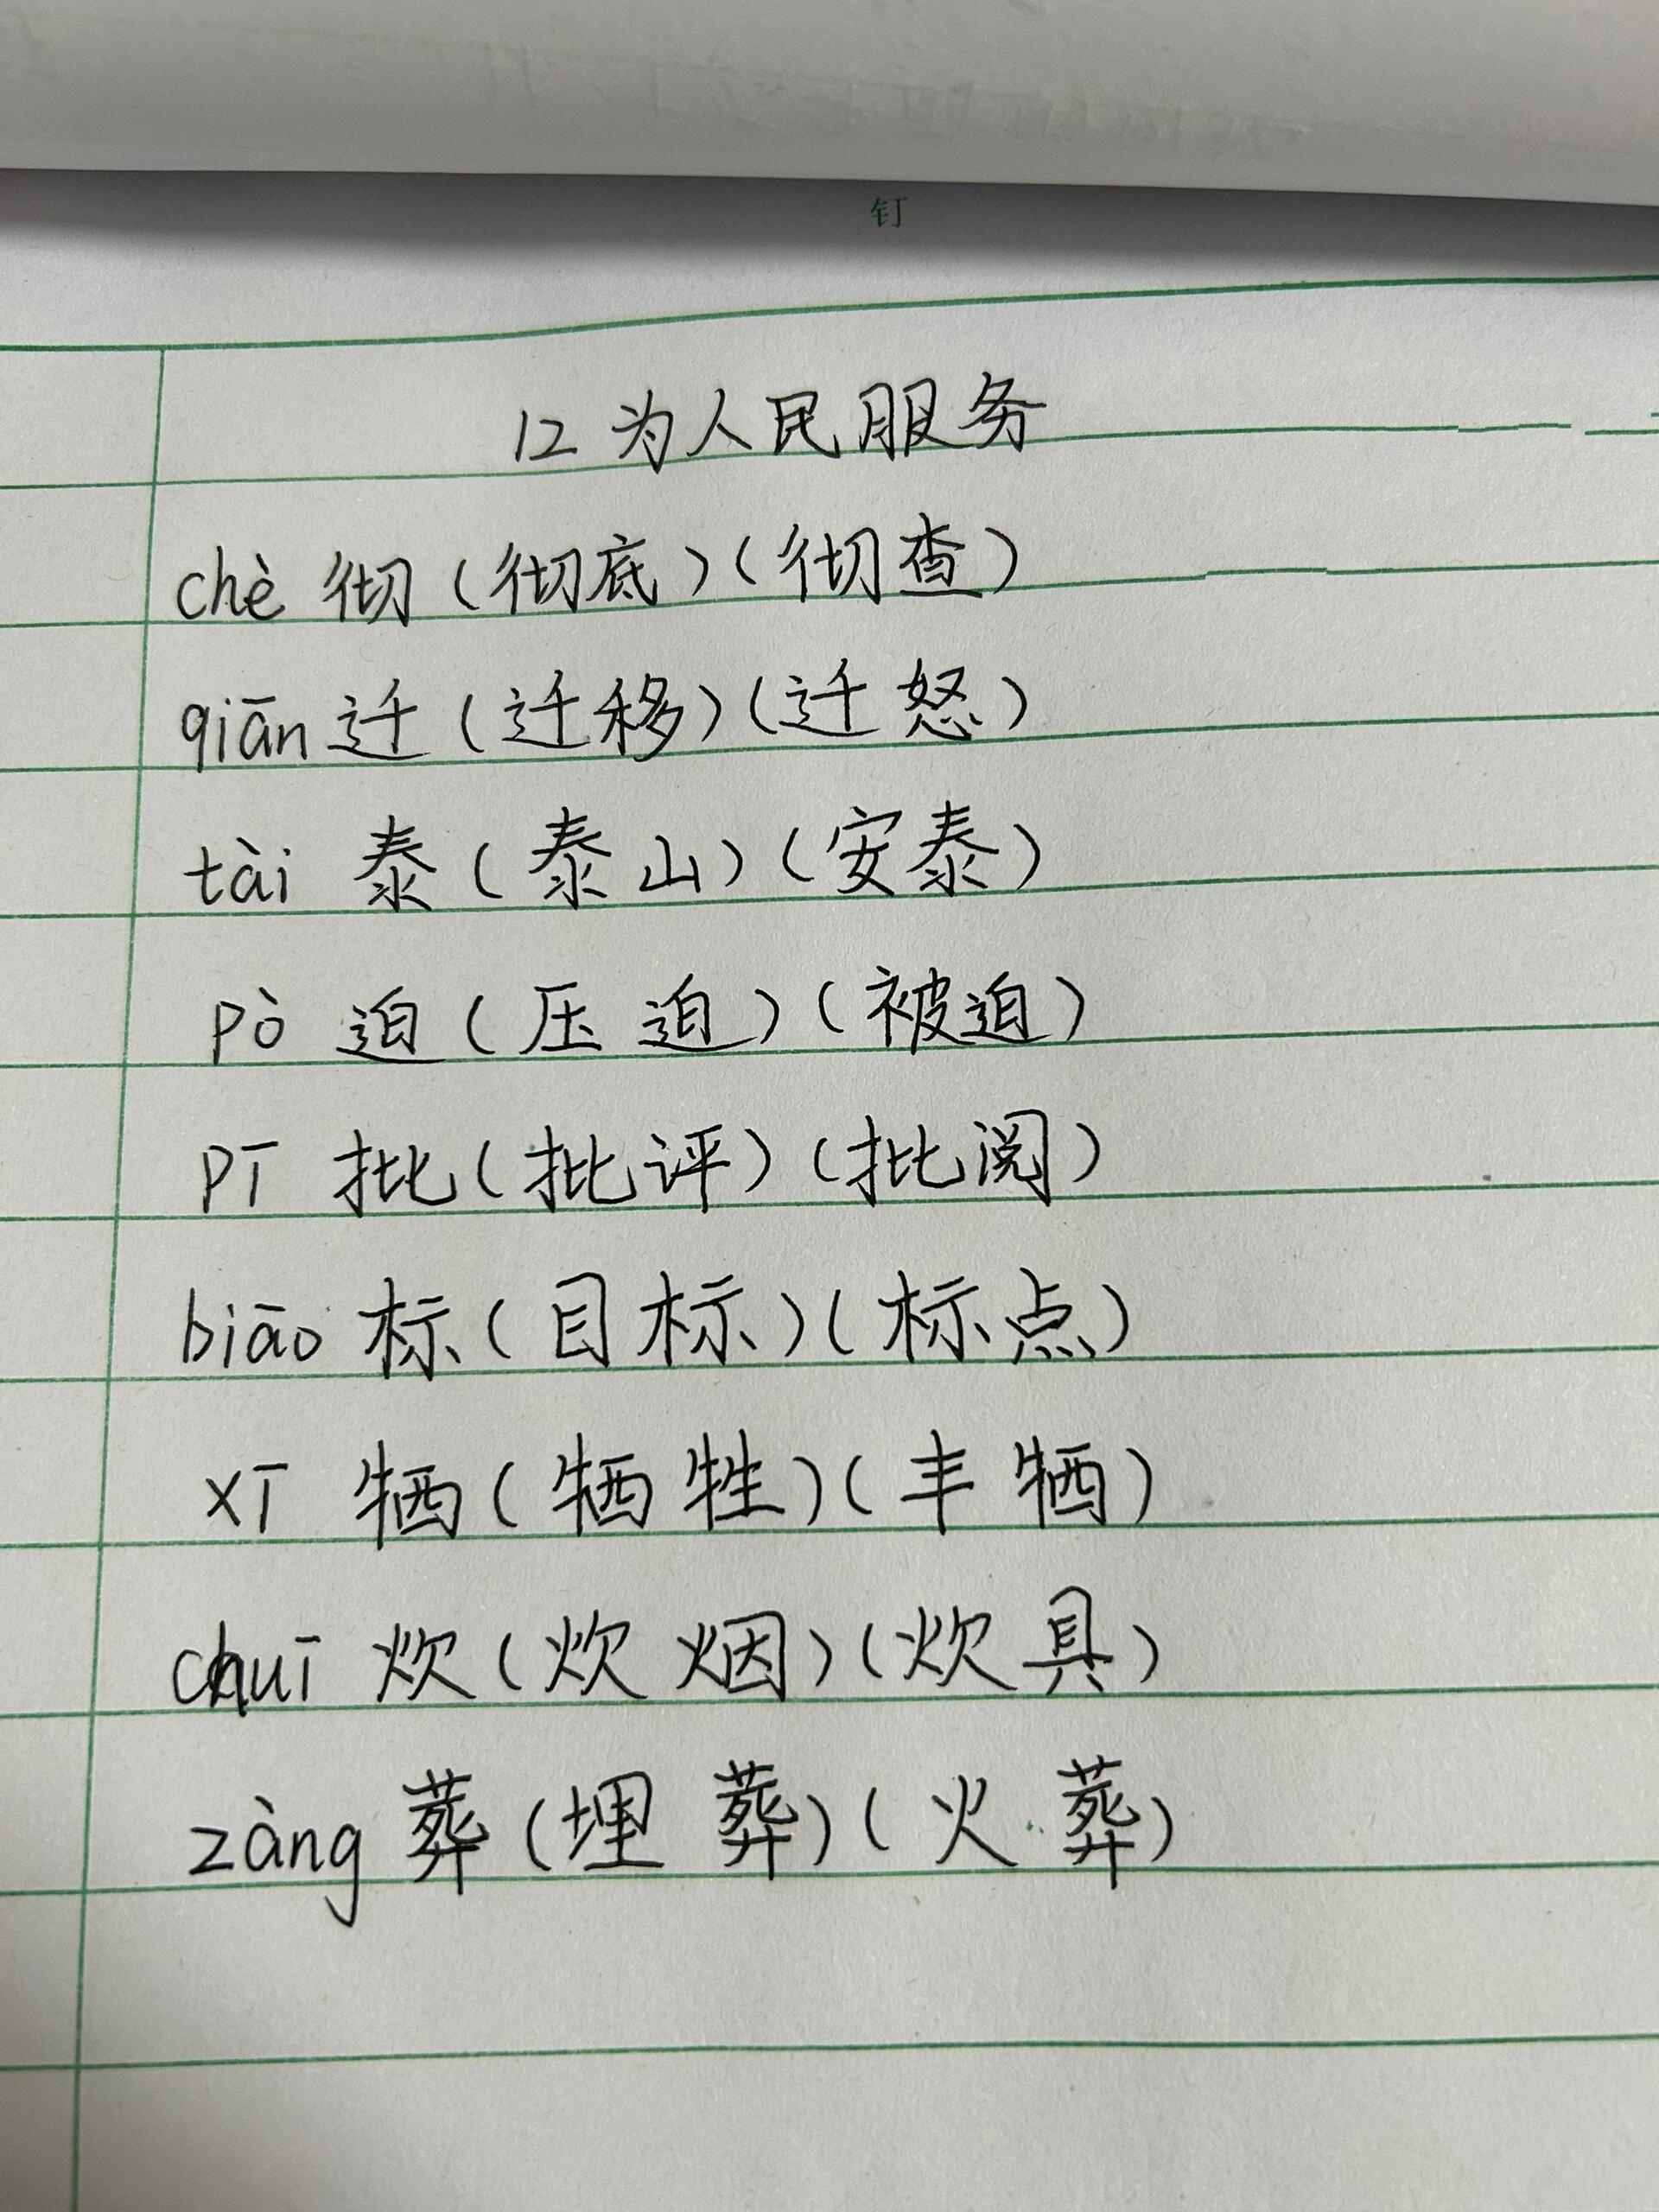 钉
12 为人民服务
chè 彻(彻底)(彻查)
qiān 迁(迁移)(迁怒)
tài 泰(泰山)(安泰)
pò 迫(压迫)(被迫)
pī 批(批评)(批阅)
biāo 标(目标)(标点)
xī 牺(牺牲)(丰牺)
chuī 炊(炊烟)(炊具)
zàng 葬(埋葬)(火葬)